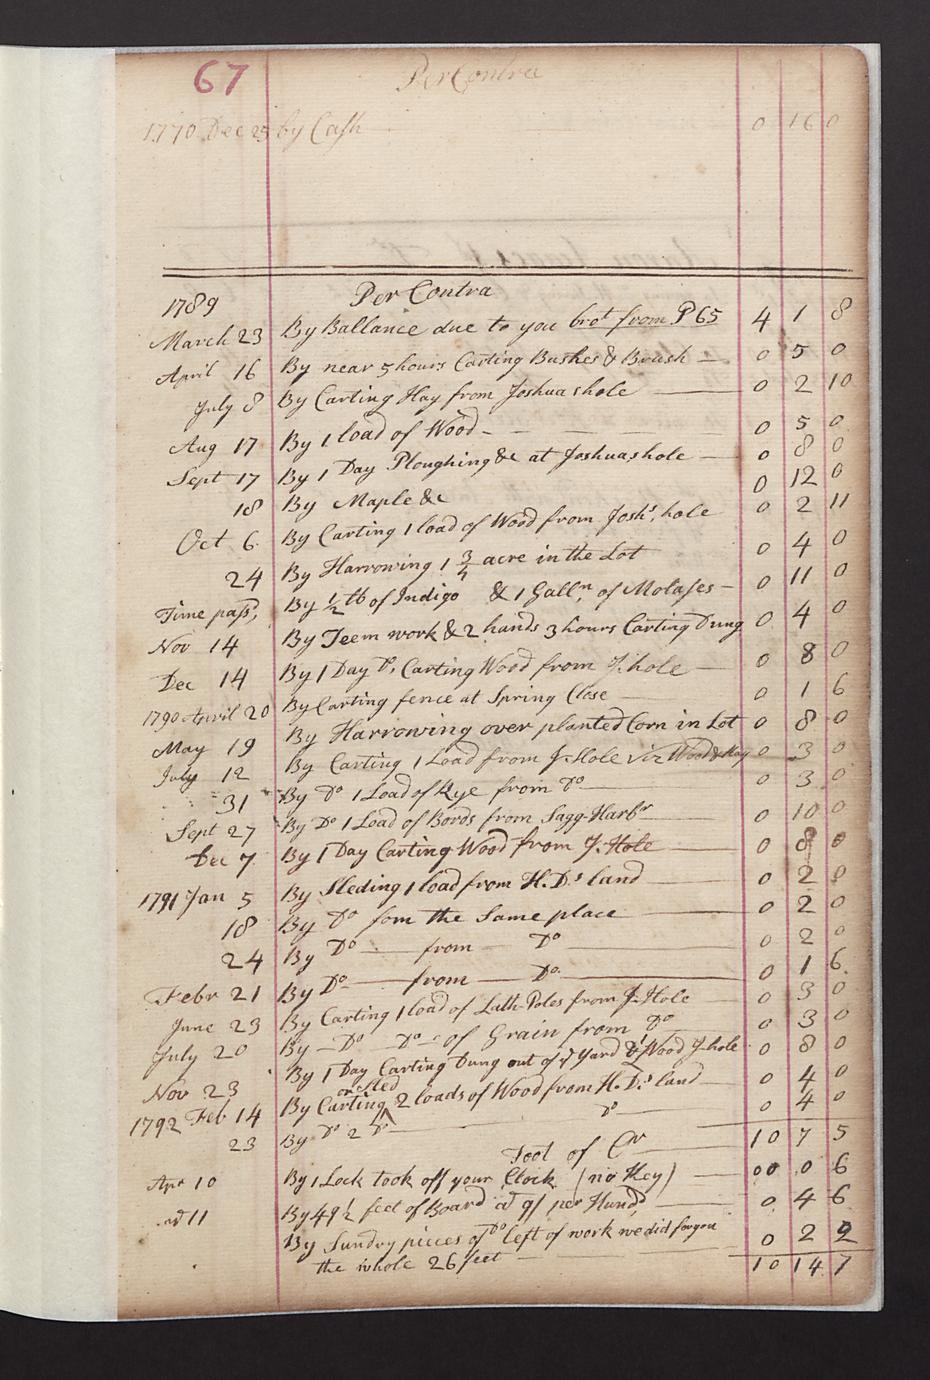 67
Per Contra
1770 Dec 25 by Cash 0 16 0
1789 Per Contra
March 23 By Ballance due to you brot from P 65 4 1 8
April 16 By near 5 hours Carting Bushes & Brush 0 5 0
July 8 By Carting Hay from Joshuashole 0 2 10
Aug 17 By 1 load of Wood 0 5 0
Sept 17 By 1 Day Ploughing &c at Joshuashole 0 8 0
18 By Maple &c 0 12 0
Oct 6 By Carting 1 load of Wood from Joshs, hole 0 2 11
24 By Harrowing 1 3/4 acre in the Lot 0 4 0
Time past, By 1/2 lb of Indigo & 1 Galln, of Molases 0 11 0
Nov 14 By Teem work & 2 hands 3 hours Carting Dung 0 4 0
Dec 14 By 1 Day Do, Carting Wood from J. hole 0 8 0
1790 April 20 By Carting fence at Spring Close 0 1 6
May 19 By Harrowing over planted Corn in Lot 0 8 0
July 12 By Carting 1 Load from J. Hole viz Wood & Hay 0 3 0
31 By Do 1 Load of Rye from Do 0 3 0
Sept 27 By Do 1 Load of Bords from Sagg-Harbr 0 10 0
Dec 7 By 1 Day Carting Wood from J. Hole 0 8 0
1791 Jan 5 By Sleding 1 load from H. Ds land 0 2 0
18 By Do fom the Same place 0 2 0
24 By Do from Do 0 2 0
Febr 21 By Do from Do 0 1 6
June 23 By Carting 1 load of Lath-Poles from J. Hole 0 3 0
July 20 By Do Do of Grain from Do 0 3 0
Nov 23 By 1 Day Carting Dung out of ye Yard & Wood J-hole 0 8 0
or Sled
1792 Feb 14 By Carting 2 loads of Wood from H. D.s land 0 4 0
23 By Do 2 Do Do 0 4 0
Foot of Cr 10 7 5
Apr 10 By 1 Lock took off your Clock (no Key) 00 0 6
11 By 49 1/2 feet of Board at 9/ per Hund, 0 4 6
By Sundry pieces of Do left of work we did for you
the whole 26 feet 0 2 2
10 14 7